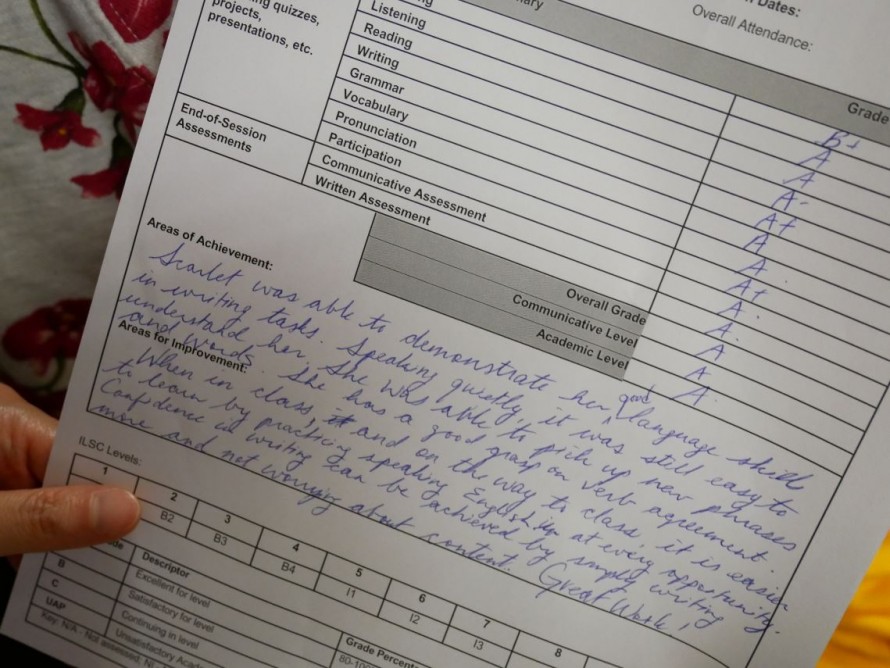 Overall Attendance:
Dates:
ng quizzes,
projects,
presentations, etc.
Grade
Listening
Reading
Writing
Grammar
Vocabulary
Pronunciation
Participation
Communicative Assessment
Written Assessment
End-of-Session
Assessments
B+
A
A
A-
A+
A
A
A+
A
A
A
A
A
Overall Grade
Communicative Level
Academic Level
Areas of Achievement:
Scarlet was able to demonstrate her good language skills
in writing tasks. Speaking quietly, it was still easy to
understand her. She was able to pick up new phrases
and words. She has a good grasp on verb agreement.
Areas for Improvement:
When in class, and on the way to class, it is easier
to learn by practicing speaking English at every opportunity.
Confidence in writing can be achieved by simply writing
more and not worrying about content. Great Work!
ILSC Levels:
1 2 3 4 5 6 7 8
B2 B3 B4 I1 I2 I3
Descriptor
B Excellent for level
C Satisfactory for level
UAP Continuing in level
Unsatisfactory
Key: N/A - Not assessed;
Grade